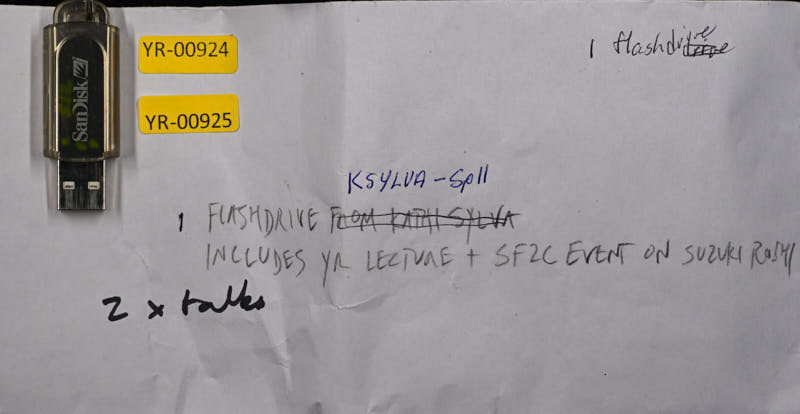 SanDisk
YR-00924
YR-00925
1 flashdrive
KSYLVA - Sp11
1 FLASHDRIVE FROM KATHI SYLVA
INCLUDES YR LECTURE + SFZC EVENT ON SUZUKI ROSHI
2 x talks